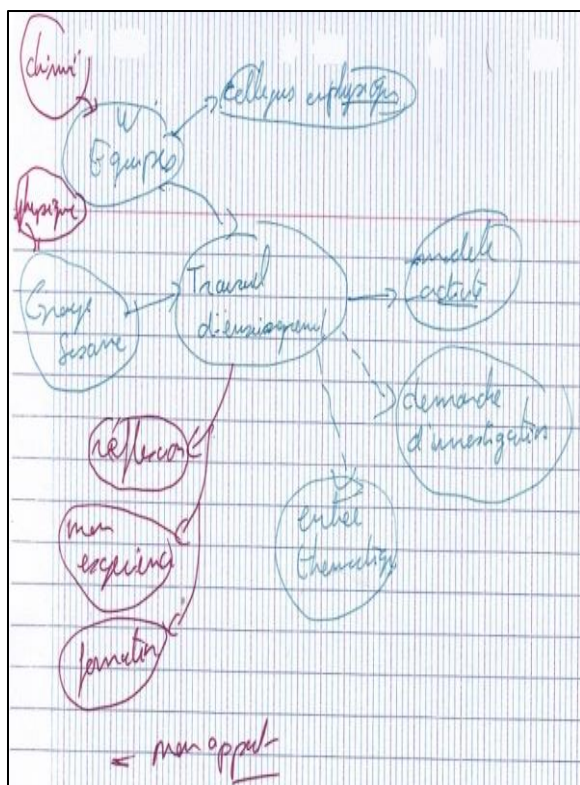 chimi
W
Equipes
collègues en physique
physique
Groupe
Sesame
Travail
d'enseignement
modèle
activité
démarche
d'investigation
entrée
thématique
réflexion
mon
expérience
formation
← mon apport